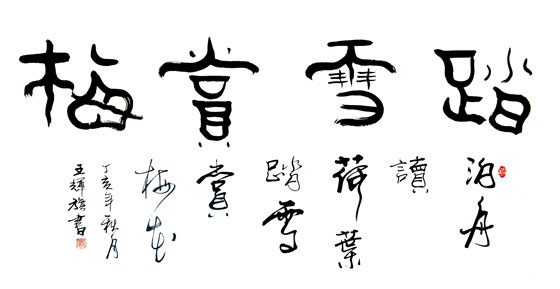 踏雪賞梅
泊舟
讀
荷葉
踏雪
賞
梅花
丁亥年秋月
王輝書